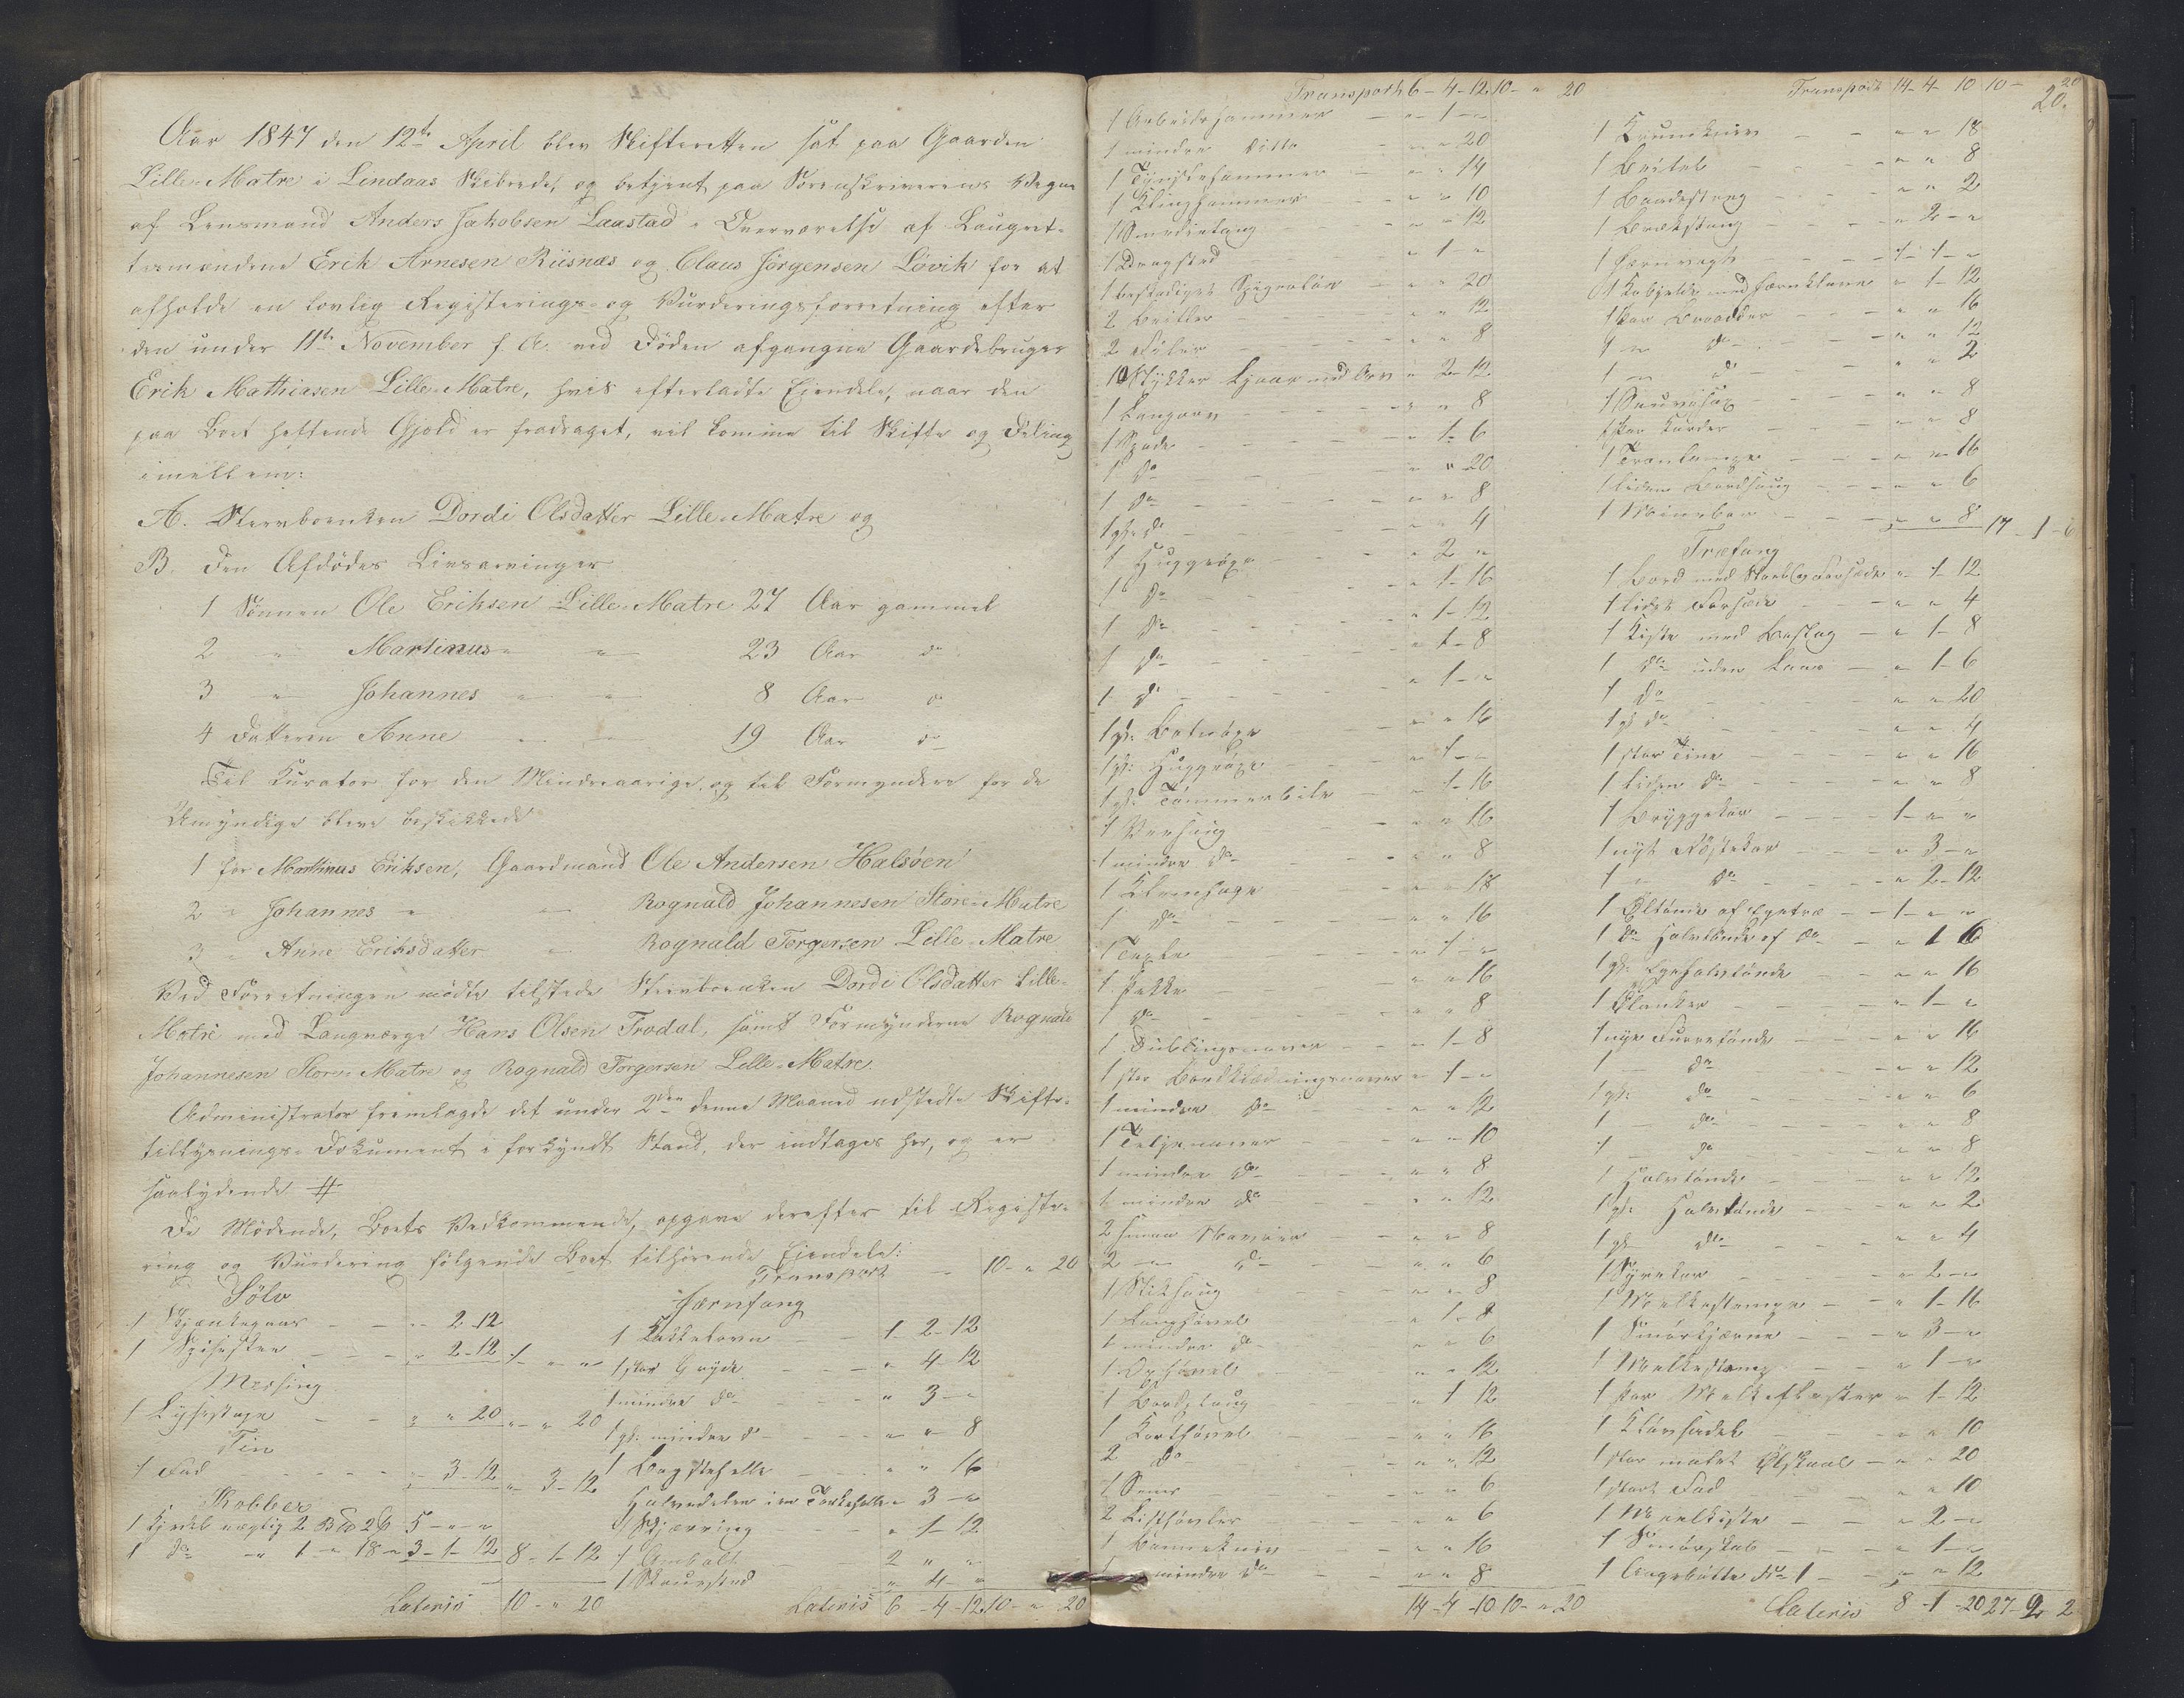 Aar 1847 den 12te April blev Skifteretten sat paa Gaarden
Lille-Matre i Lindaas Skibrede, og betjent paa Sorenskriverens Vegne
af Lensmand Anders Jakobsen Laastad i Overværelse af Laugret-
temændene Erik Arnesen Riisnæs og Claus Jörgensen Lövik for at
afholde en lovlig Registerings- og Vurderingsforretning efter
den under 11te November f. A. ved Döden afgangne Gaardbruger
Erik Mathiasen Lille-Matre, hvis efterladte Eiendele, naar den
paa Boet heftende Gjæld er fradraget, vil komme til Skifte og Deling
imellem:
A. Stervboenken Dordi Olsdatter Lille-Matre og
B. den Afdödes Livsarvinger
1 Sönnen Ole Eriksen Lille-Matre 27 Aar gammel
2 " Martinus " " 23 Aar do
3 " Johannes " " 8 Aar do
4 Datteren Anne 19 Aar do
Til Kurator for den Mindreaarige, og til Formyndere for de
Umyndige bleve beskikkede
1 for Martinus Eriksen, Gaardmand Ole Andersen Halsöen
2 " Johannes " " Rognald Johannesen Store-Matre
3 " Anne Eriksdatter " Rognald Torgersen Lille-Matre
Ved Forretningen mödte tilstede Stervboenken Dordi Olsdatter Lille-
Matre med Laugværge Hans Olsen Trodal, samt Formynderne Rognald
Johannesen Store-Matre og Rognald Torgersen Lille-Matre.
Administrator fremlagde det under 2den denne Maaned udstedte Skifte-
tillysnings-Dokument i forkyndt Stand, der indtages her, og er
saalydende #
De Mödende, Boets Vedkommende, opgave derefter til Registe-
ring og Vurdering fölgende Boet tilhörende Eiendele:
Sölv
1 - " 2-12
1 Spiseskee - " 2-12 1 - " "
Messing
1 Lysestage - " " 20 " - " 20
Tin
1 Fad - " 3-12 " 3-12
Kobber
1 Kjedel vægtig 2 B 2 5 - " "
1 do " 1 - 18 - 3-1-12 8-1-12
Lateris 10 - " 20
Transport 10 - " 20
Jernfang
1 Kakkelovn - 1-2-12
1 stor Gryde - " 4-12
1 mindre do - " 3 - "
1 gl: mindre do - " " 8
1 Bagstehelle - " " 16
Halvedelen i en - " 3 - "
1 Skjæring - " 1-12
1 Ambolt 2 " "
1 - " 4 - "
Lateris 6-4-12 10 - " 20
Transport 6-4-12 10 - " 20
1 Arbeidshammer - " 1 - "
1 mindre ditto - " " 20
1 - " " 14
1 Klinghammer - " " 10
1 Smedietang - " " 12
1 - " 1 - "
1 beskadiget - " " 20
2 Beitler - " " 12
2 File - " " 8
10 Stykker Ljaar med Orv " 2-12
1 Langorv - " " 8
1 Spade - " 1-6
1 do - " " 20
1 do - " " 8
1 gl: do - " " 4
1 Huggeöxe - " 2 "
1 do - " 1-16
1 do - " 1-12
1 do - " 1-8
1 do - " 1 - "
1 gl: - " " 16
1 gl: Huggeöxe - " 1 - "
1 gl: Tömmerbile - " 1-16
1 - " " 16
1 mindre do - " " 8
1 - " " 18
1 do - " " 16
1 - " 1 - "
1 Hakke - " " 16
1 do - " " 8
1 - " 1-8
1 stor " 1 - "
1 mindre do - " " 12
1 Teljenaver - " " 10
1 mindre do - " " 8
1 mindre do - " " 12
2 smaa Navrer - " " 8
2 " do - " " 6
1 Stiksaug - " " 8
1 Langhövel - " 1-8
1 mindre do - " " 6
1 - " " 12
1 - " 1 12
1 Korthövel - " " 16
2 do - " " 12
1 - " " 6
2 Listhövler - " " 6
1 - " " 16
1 mindre do - " " 8
14-4-10 10 - " 20
Transport 14-4-10 10 - 20
20.
1 Krumkniv - " " 18
1 Beitel - " " 8
1 - " " 2
1 Brækstang - " 2 - "
1 - 1-1 - "
1 Kobjelde med Jernklave " 1-12
1 Par Brodder - " " 16
1 " do - " " 12
1 " do - " " 2
1 Sauesax - " " 8
1 Par Karder - " " 8
1 Tranlampe - " " 16
1 liden - " " 6
1 - " " 8 17-1-6
Træfang
1 Bord med " 1-12
1 lidet - " " 4
1 Kiste med Beslag - " 1-8
1 do uden Laas - " 1-6
1 do - " " 20
1 gl do - " " 4
1 stor Tine - " " 16
1 liden do - " " 8
1 Bryggekar - 1 - " "
1 nyt - " 3 - "
1 " do - " 2-12
1 Öltönde af Egetræ - 1 - " "
1 do Halvtönde af do - " 1 6
1 gl: Egehalvtönde - " " 16
1 - " 1 - "
1 nye Furretönde - " " 16
1 - do - " " 12
1 gl: do - " " 6
1 - do - " " 8
1 - do - " " 8
1 Halvtönde - " " 12
1 gl: Halvtönde - " " 2
1 gl do - " " 4
1 Syrekar - " 2 - "
1 - " 1-16
1 Smörkjærne - " 3 - "
1 - " 1 - "
1 Par " 1-12
1 Klövsadel - " " 10
1 stor malet Ölskaal - " " 20
1 stort Fad - " " 10
1 Meelkiste - " 2 - "
1 - " 1 - "
1 - " " 12
Lateris 8-1-20 27-2 2